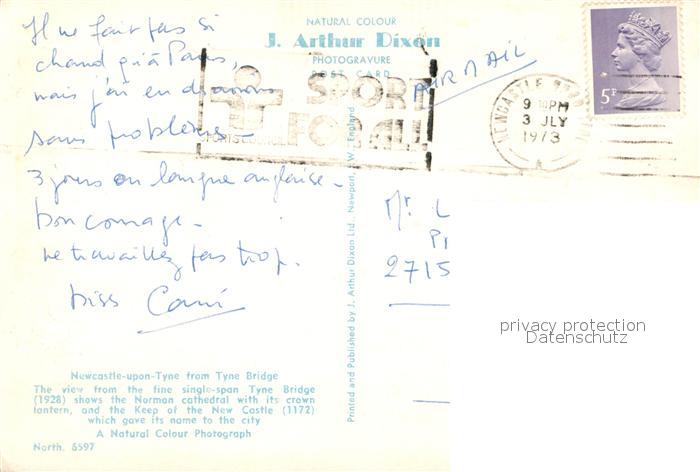 NATURAL COLOUR
J. Arthur Dixon
PHOTOGRAVURE
POST CARD
Il ne fait pas si
chaud qu'à Paris,
mais j'ai en
sans problèmes –
3 jours en langue anglaise –
bon courage –
ne travaillez pas trop.
biss
SPORT
FOR ALL
SPORTS COUNCIL
AIR MAIL
NEWCASTLE
9 PM
3 JLY
1973
A
5P
Mr L
2715
Printed and Published by J. Arthur Dixon Ltd., Newport, I.W., England
privacy protection
Datenschutz
Newcastle-upon-Tyne from Tyne Bridge
The view from the fine single-span Tyne Bridge
(1928) shows the Norman cathedral with its crown
lantern, and the Keep of the New Castle (1172)
which gave its name to the city
A Natural Colour Photograph
North. 8597